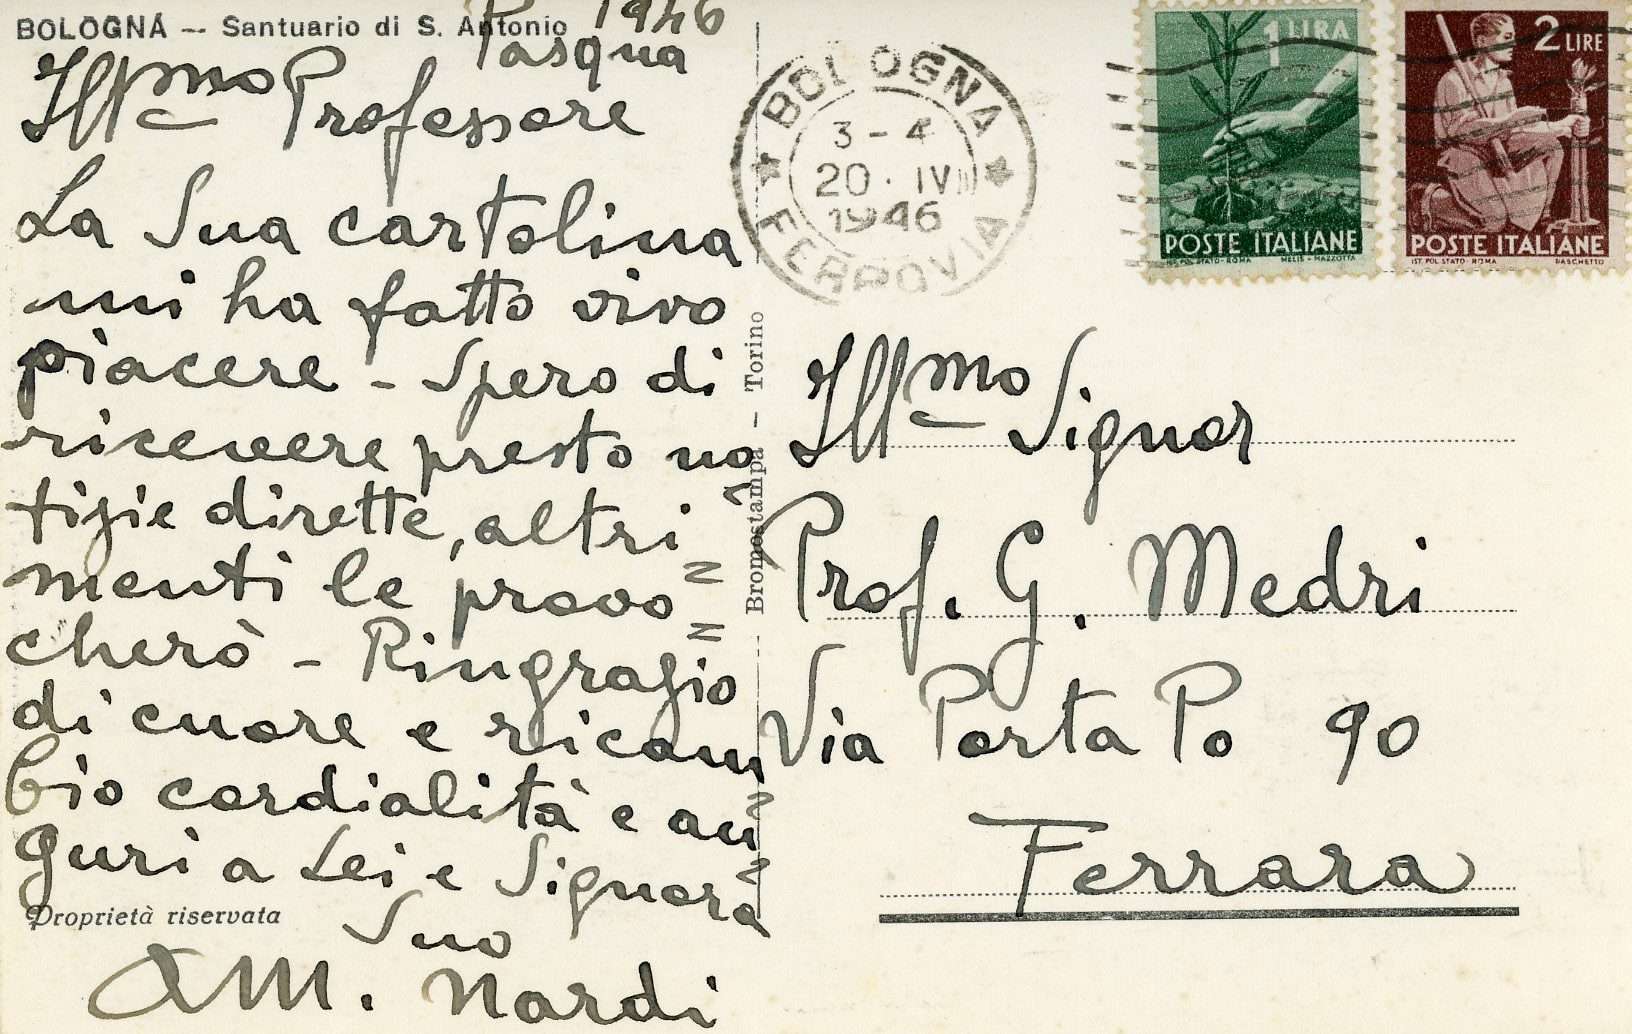 BOLOGNA -- Santuario di S. Antonio
Pasqua 1946
Ill.mo Professore
La Sua cartolina
mi ha fatto vivo
piacere - Spero di
ricevere presto no
tizie dirette, altri=
menti le provo=
cherò - Ringrazio
di cuore e ricam=
bio cordialità e au=
guri a Lei e Signora
Suo
AM. Nardi
Proprietà riservata
Bromostampa - Torino
BOLOGNA
3 - 4
20 · IV
1946
FERROVIA
1 LIRA
POSTE ITALIANE
IST. POL. STATO - ROMA MELIS - MAZZOTTA
2 LIRE
POSTE ITALIANE
IST. POL. STATO - ROMA PASCHETTO
Ill.mo Signor
Prof. G. Medri
Via Porta Po 90
Ferrara